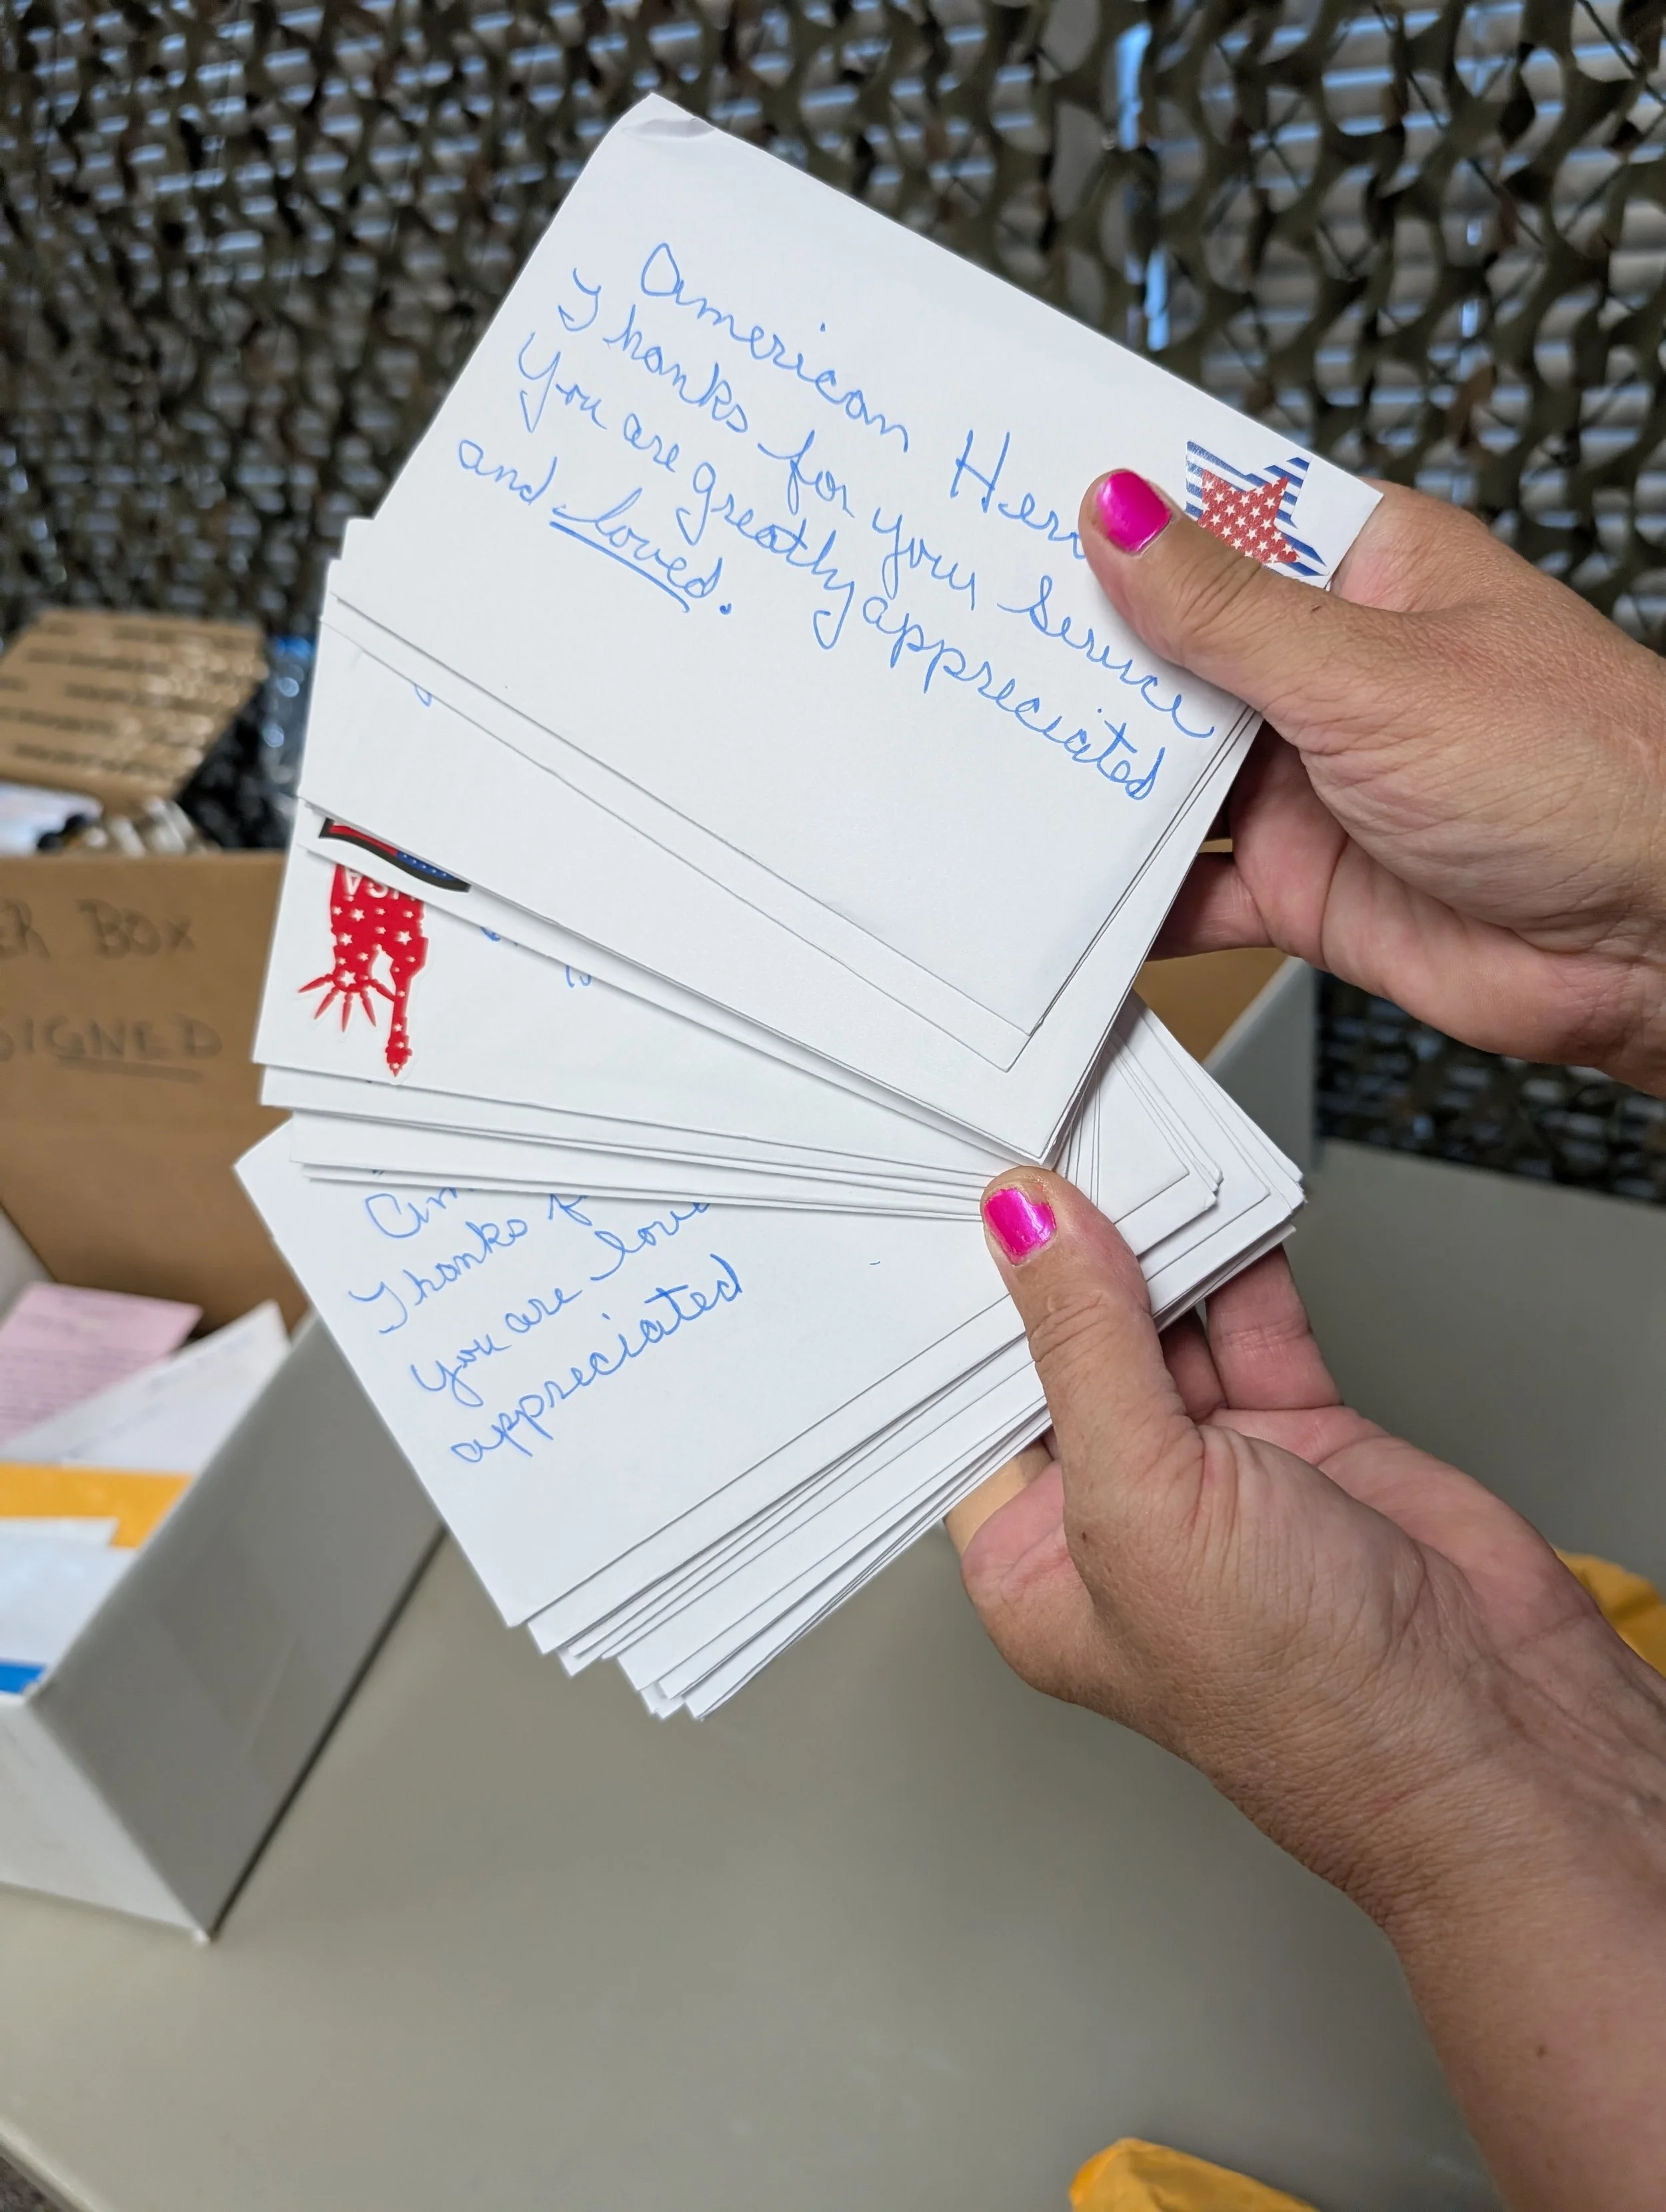 American Hero
Thanks for your Service
You are greatly appreciated
and loved.
USA
Am
Thanks f
you are love
appreciated
ER BOX
SIGNED